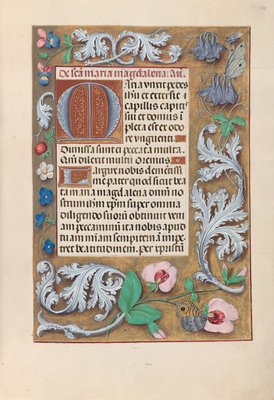 De sca maria magdalena. añ.
Maria vnxit pedes
ihesu et extersit
capillis capitis
sui et domus i
pleta est ex odo
re vnguenti.
Dimissa sunt ei peccata multa.
Qm̄ dilexit multū Oremus.
Largire nobis clementissi
me pater quod sicut bea
ta maria magdalena dñm no
strum ihm xpm super omnia
diligendo suorū obtinuit veni
am peccaminū ita nobis apud
tuam miam sempiternā impe
tret beatitudinem. per xpistū